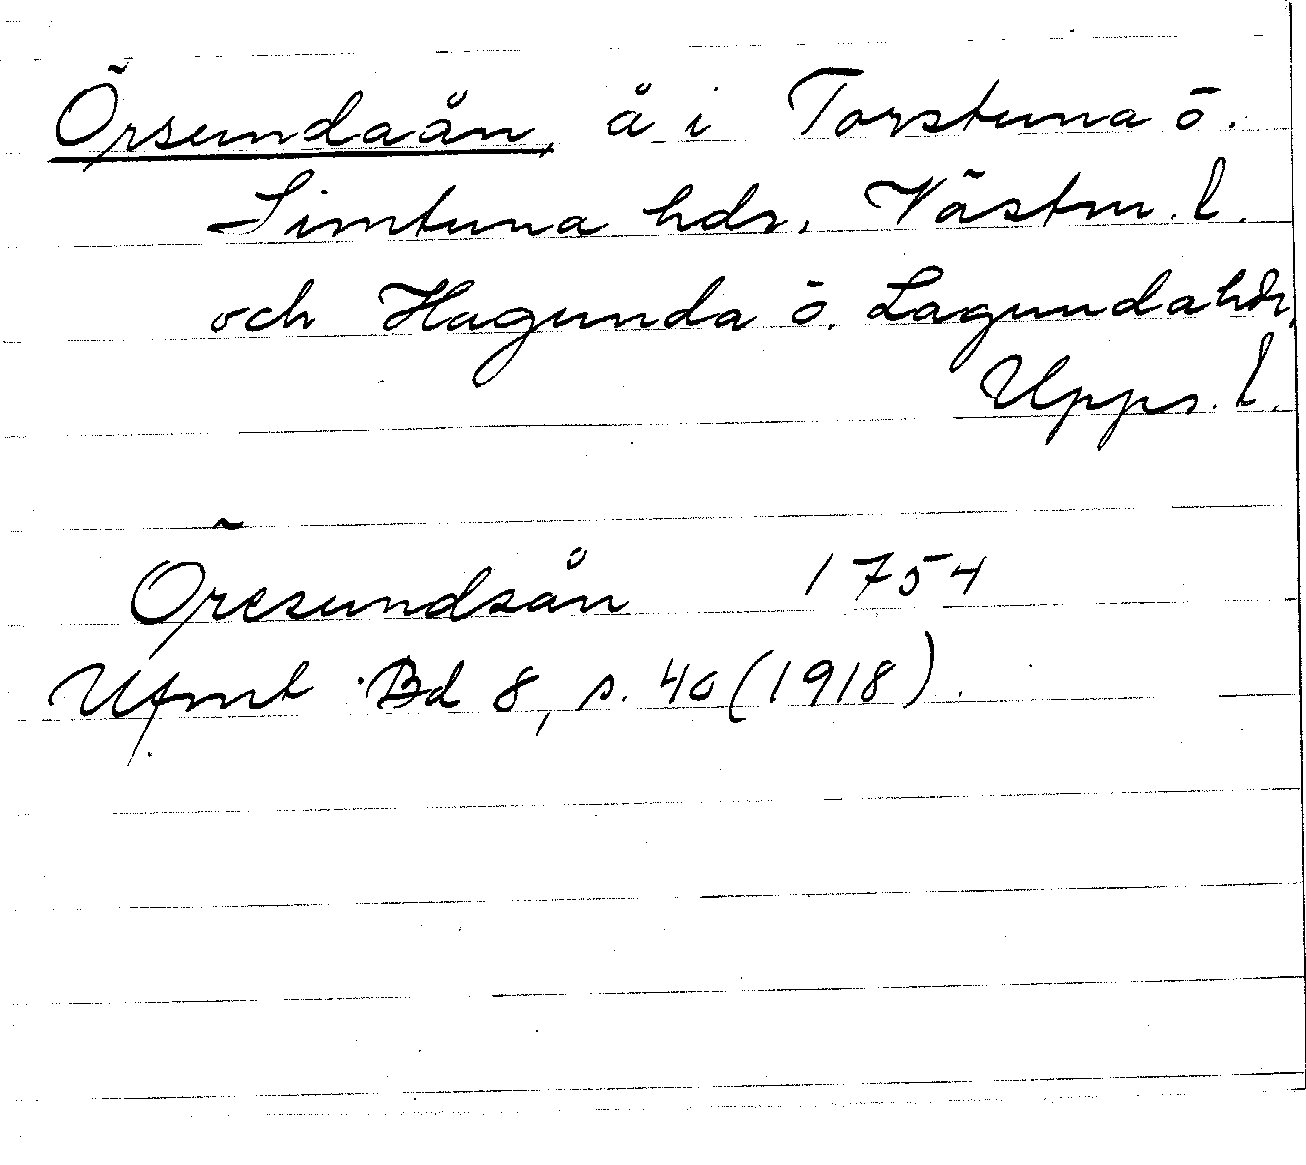 Örsundaån, å i Torstuna o.
Simtuna hdr, Västm. l.
och Hagunda o. Lagunda hdr,
Upps. l.
Öresundsån 1754
Ufmt Bd 8, s. 40 (1918).